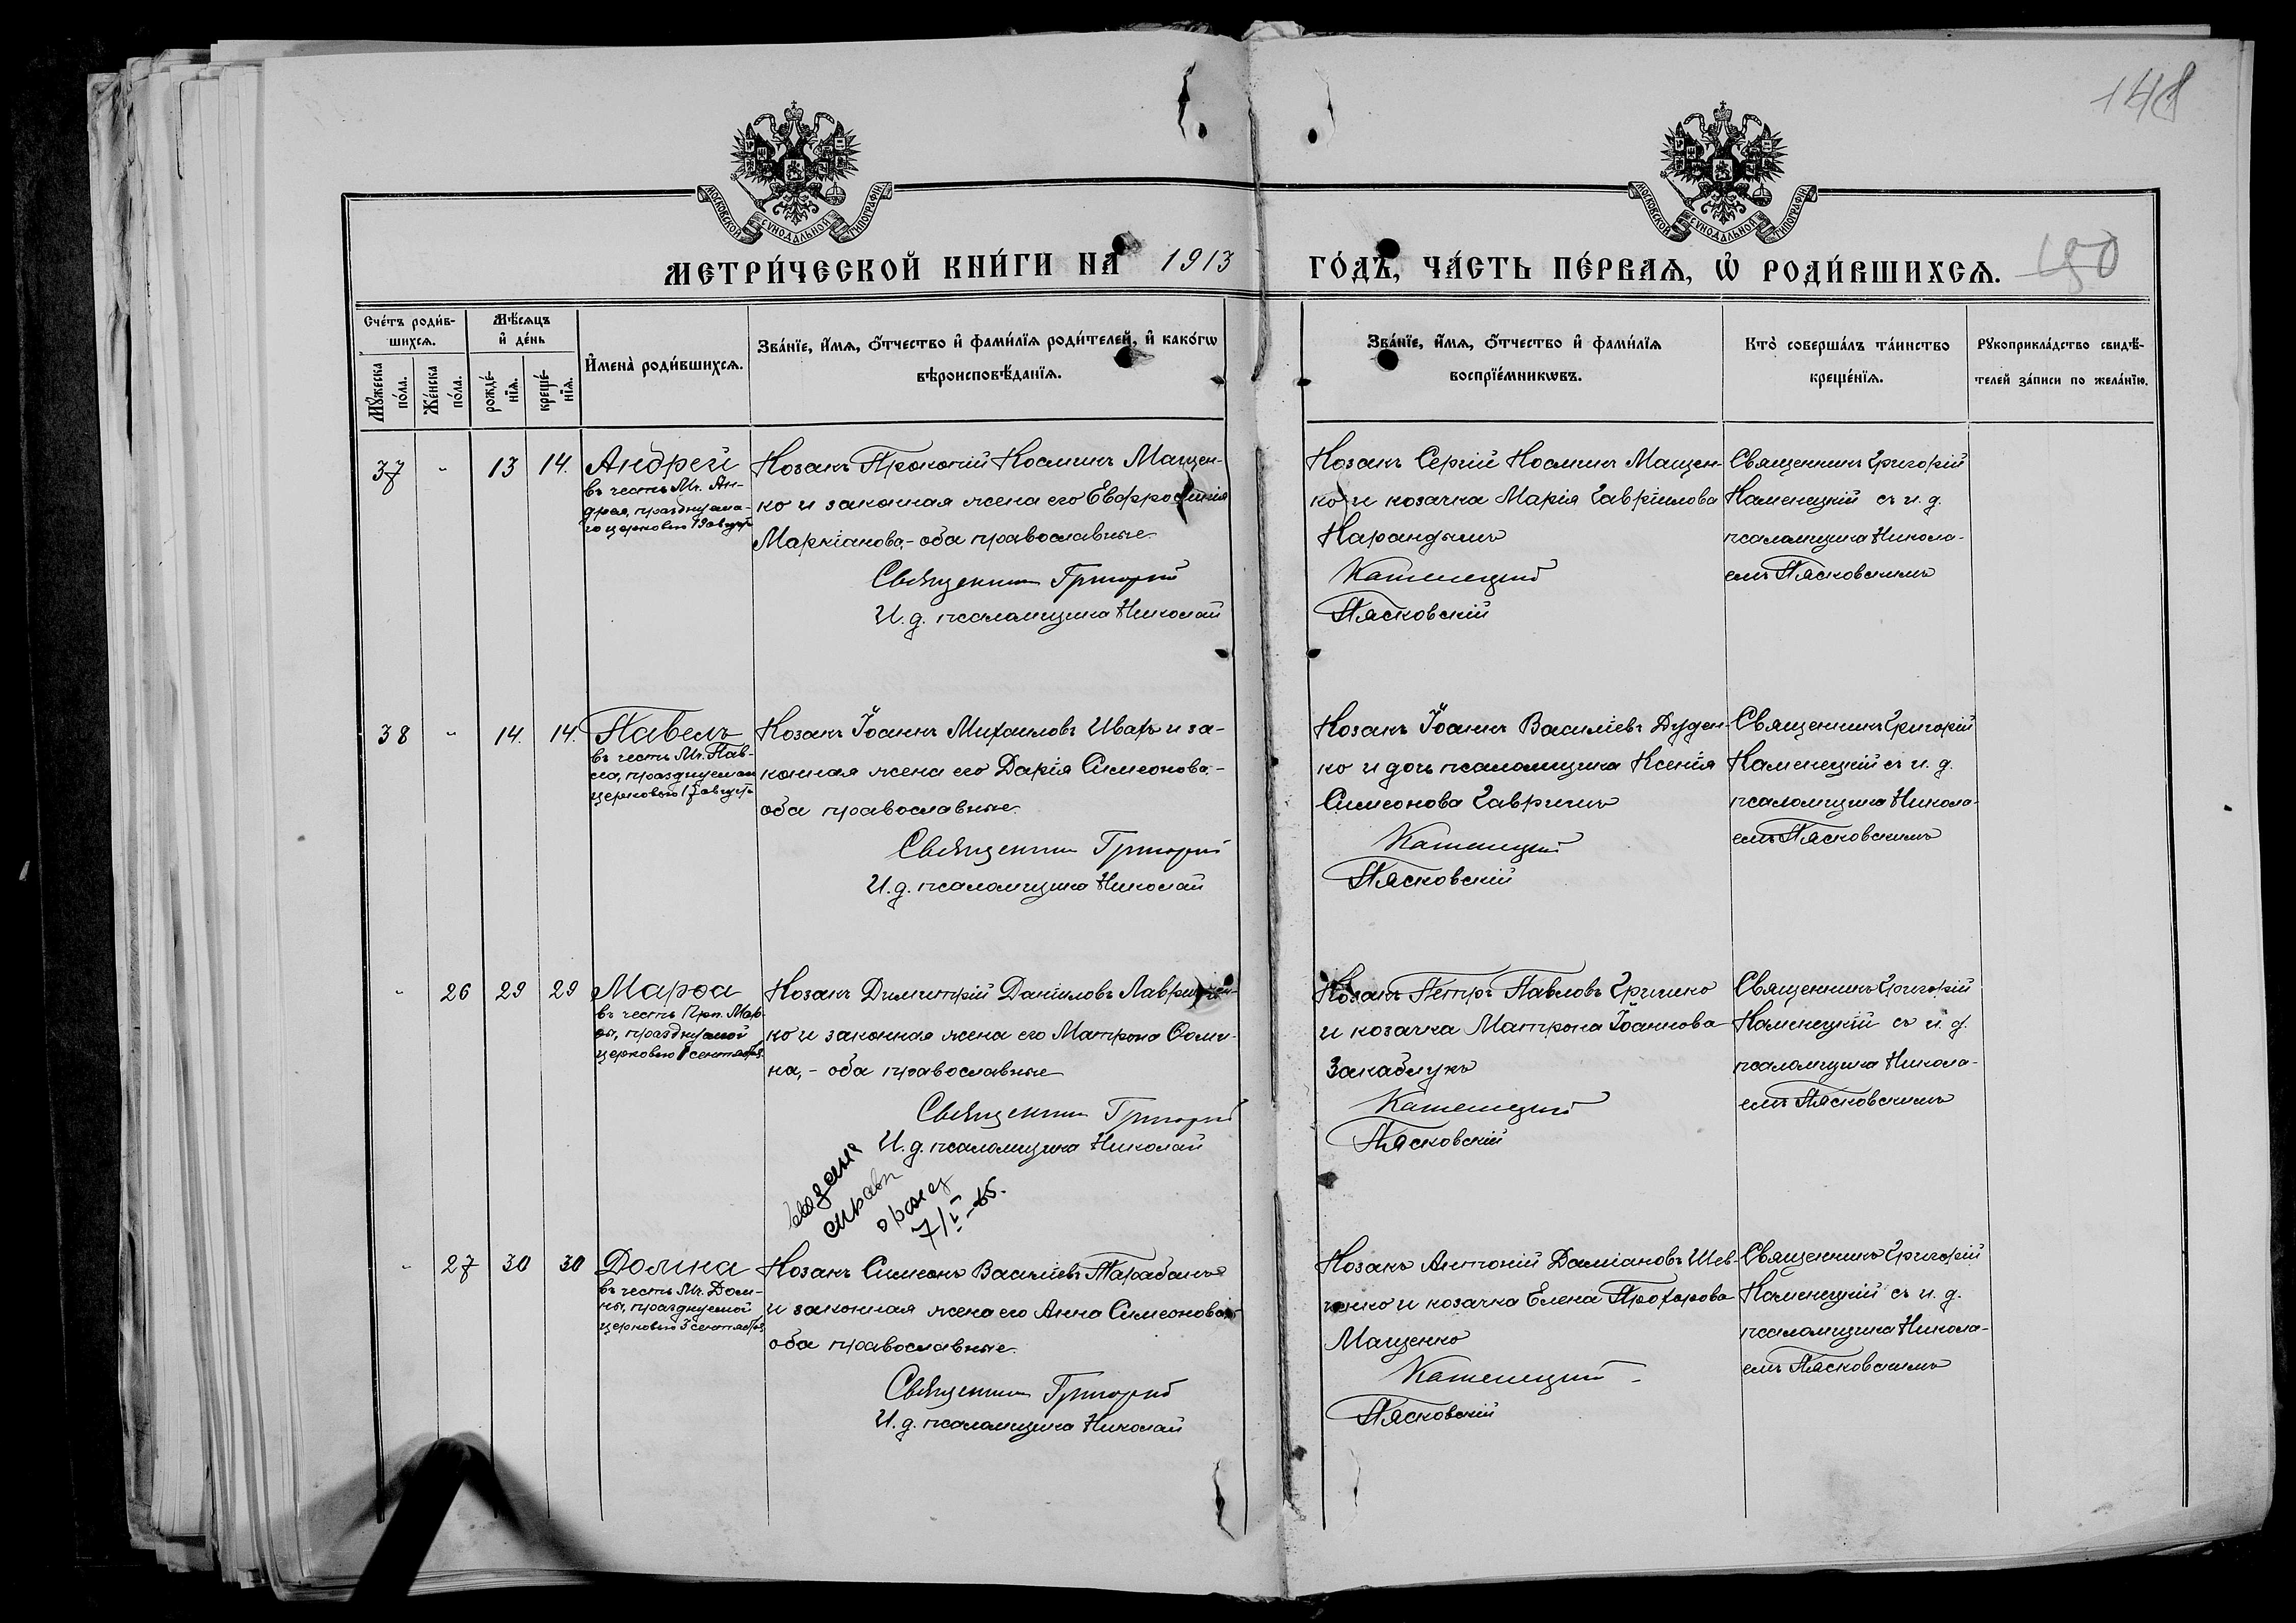 148
МОСКОВСКОЙ СѴНОДАЛЬНОЙ ТИПОГРАФІИ
МОСКОВСКОЙ СѴНОДАЛЬНОЙ ТИПОГРАФІИ
МЕТРИ́ЧЕСКОЙ КНИ́ГИ НА 1913
ГО́ДЪ, ЧА́СТЬ ПЕ́РВАѦ, Ѡ҆ РОДИ́ВШИХСѦ. 150
Сче́тъ роди́в-
шихсѧ.
Мѣ́сѧцъ
и҆ де́нь
Мꙋ́жеска
по́ла.
Же́нска
по́ла.
рожде́-
нїѧ.
креще́-
нїѧ.
И҆мена̀ роди́вшихсѧ.
Зва́нїе, и҆́мѧ, ѻ҆́тчество и҆ фами́лїѧ роди́телей, и҆ како́гѡ
вѣроисповѣ́данїѧ.
Зва́нїе, и҆́мѧ, ѻ҆́тчество и҆ фами́лїѧ
воспрїе́мникѡвъ.
Кто̀ соверша́лъ та́инство
креще́нїѧ.
Рꙋкоприкла́дство свидѣ́-
телей за́писи по жела́нїю.
37 " 13 14. Андрей
въ честь Мч. Ан-
дрея, празднуема-
го церковью 19 август
Козакъ Прокопій Космичъ Мащен-
ко и законная жена его Евфросинія
Маркіанова, - оба православные
Священник Григорій
И. д. псаломщика Николай
Козакъ Сергій Космичъ Мащен-
ко и козачка Марія Гавріилова
Карандышъ
Каменецкій
Пясковскій
Священникъ Григорій
Каменецкій съ и. д.
псаломщика Никола-
емъ Пясковскимъ
38 " 14. 14. Павелъ
въ честь Мч. Пав-
ла, празднуемаго
церковью 17 август
Козакъ Іоаннъ Михаиловъ Шваръ и за-
конная жена его Дарія Симеонова, -
оба православные.
Священник Григорій
И. д. псаломщика Николай
Козакъ Іоаннъ Василіевъ Дуден-
ко и дочь псаломщика Ксенія
Симеонова Гавришъ
Каменецкій
Пясковскій
Священникъ Григорій
Каменецкій съ и. д.
псаломщика Никола-
емъ Пясковскимъ
" 26 29 29 Марѳа
въ честь Прп. Мар-
ѳы, празднуемой
церковью 1 сентября
Козакъ Димитрій Даніиловъ Лавринен-
ко и законная жена его Матрона Ѳоми-
на, - оба православные
Священник Григорій
И. д. псаломщика Николай
Козакъ Петръ Павловъ Гришко
и козачка Матрона Іоаннова
Закаблукъ
Каменецкій
Пясковскій
Священникъ Григорій
Каменецкій съ и. д.
псаломщика Никола-
емъ Пясковскимъ
7/I-65.
" 27 30 30 Домна
въ честь Мч. Дом-
ны, празднуемой
церковью 3 сентября
Козакъ Симеонъ Василіевъ Тарабанъ
и законная жена его Анна Симеонова
оба православные.
Священник Григорій
И. д. псаломщика Николай
Козакъ Антоній Даміановъ Шев-
ченко и козачка Елена Прохорова
Мащенко
Каменецкій
Пясковскій
Священникъ Григорій
Каменецкій съ и. д.
псаломщика Никола-
емъ Пясковскимъ